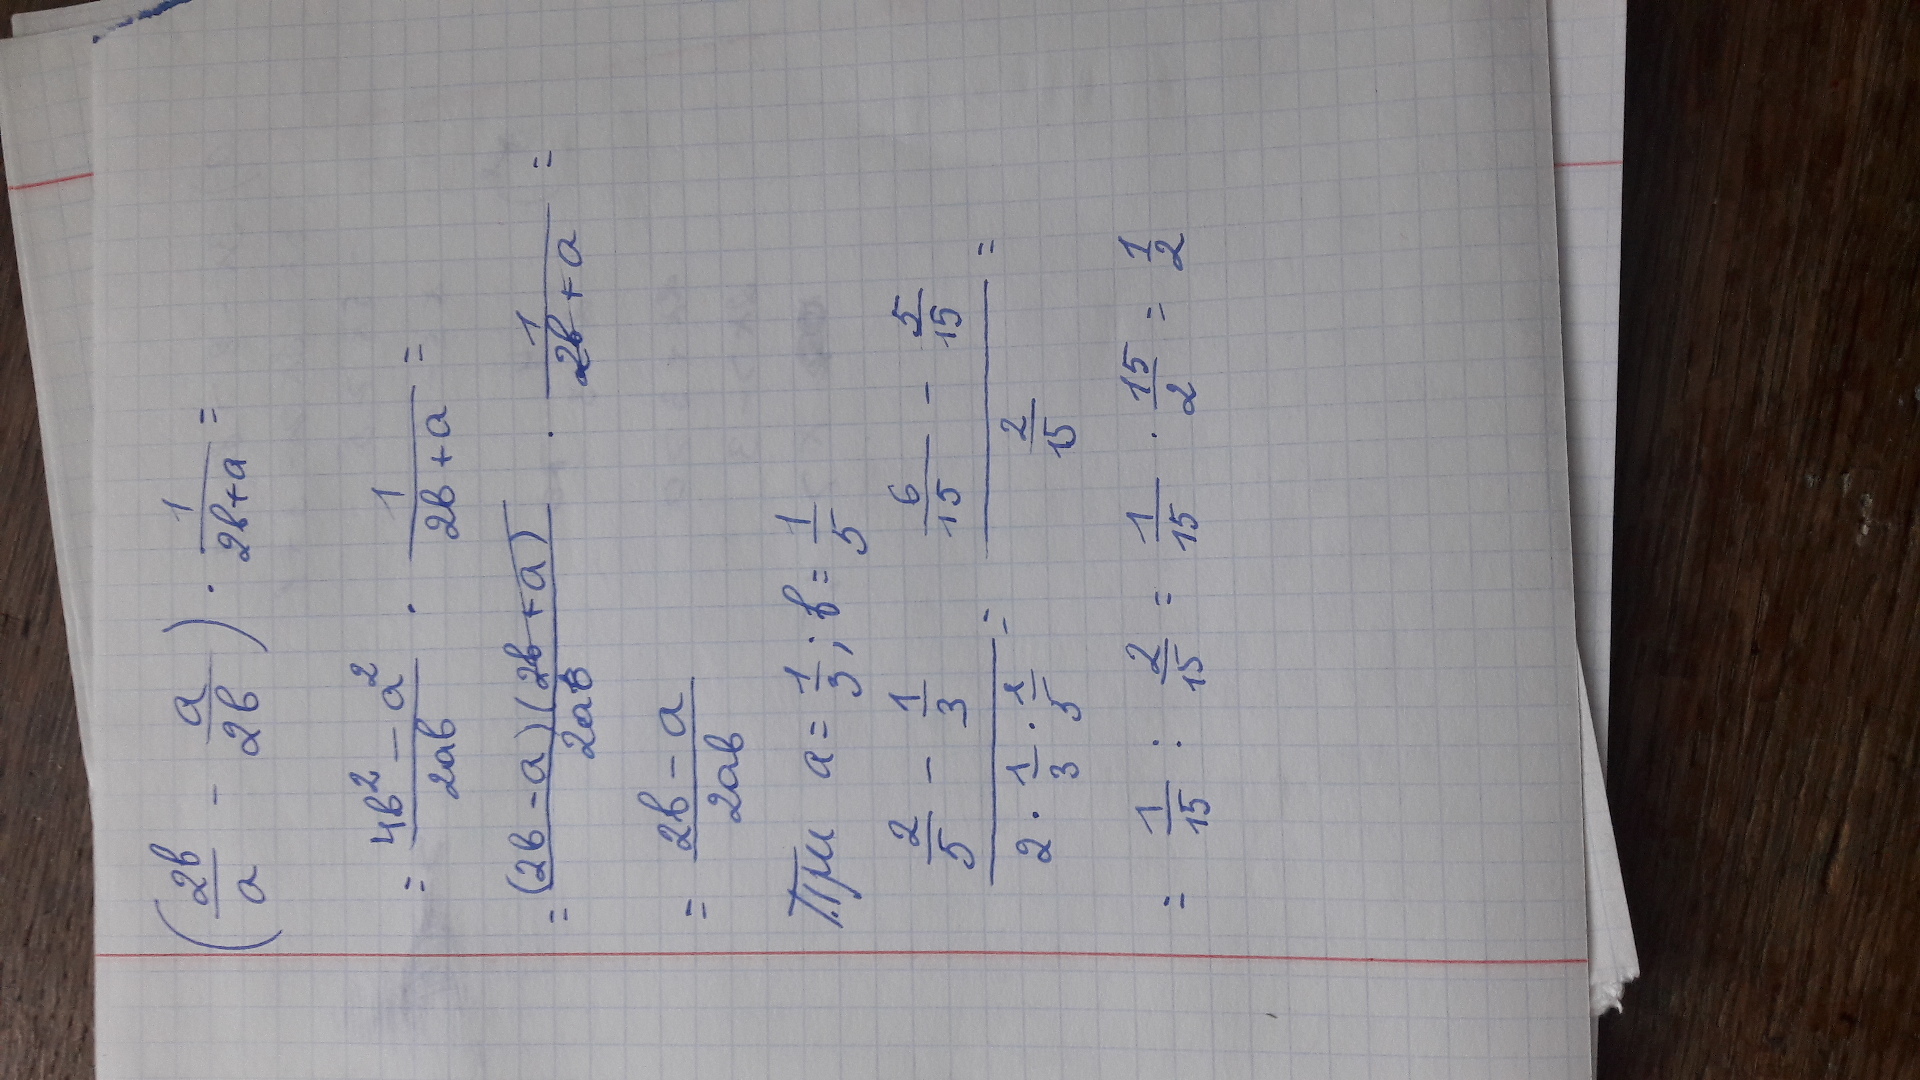 (2b/a - a/2b) · 1/(2b+a) =
= (4b² - a²)/2ab · 1/(2b+a) =
= (2b-a)(2b+a)/2ab · 1/(2b+a) =
= (2b-a)/2ab
При a = 1/3; b = 1/5
(2/5 - 1/3)/(2 · 1/3 · 1/5) = (6/15 - 5/15)/(2/15) =
= 1/15 : 2/15 = 1/15 · 15/2 = 1/2